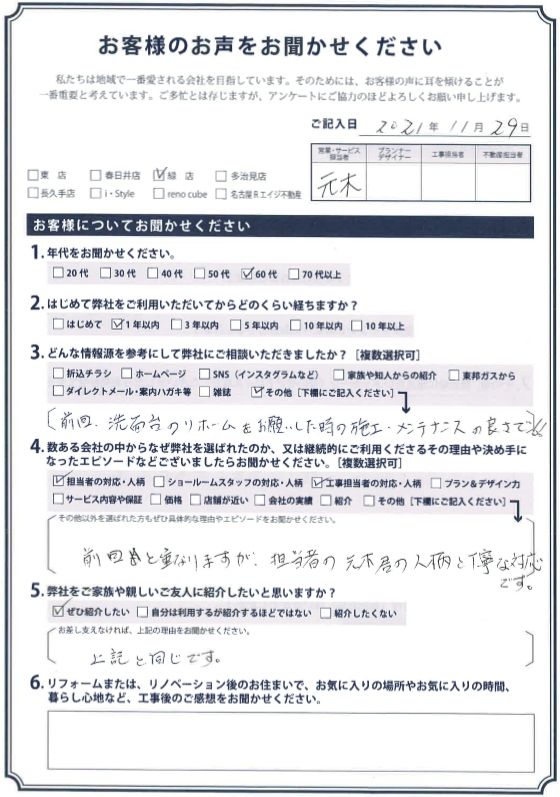 お客様のお声をお聞かせください
私たちは地域で一番愛される会社を目指しています。そのためには、お客様の声に耳を傾けることが
一番重要と考えています。ご多忙とは存じますが、アンケートにご協力のほどよろしくお願い申し上げます。
ご記入日 2021年 11月 29日
営業・サービス担当者 プランナーデザイナー 工事担当者 不動産担当者
元木
□東 店 □春日井店 ☑緑 店 □多治見店
□長久手店 □i・Style □reno cube □名古屋Rエイジ不動産
お客様についてお聞かせください
1. 年代をお聞かせください。
□20代 □30代 □40代 □50代 ☑60代 □70代以上
2. はじめて弊社をご利用いただいてからどのくらい経ちますか?
□はじめて ☑1年以内 □3年以内 □5年以内 □10年以内 □10年以上
3. どんな情報源を参考にして弊社にご相談いただきましたか?[複数選択可]
□折込チラシ □ホームページ □SNS(インスタグラムなど) □家族や知人からの紹介 □東邦ガスから
□ダイレクトメール・案内ハガキ等 □雑誌 ☑その他[下欄にご記入ください]
前回、洗面台のリホームをお願いした時の施工・メンテナンスの良さで
4. 数ある会社の中からなぜ弊社を選ばれたのか、又は継続的にご利用くださるその理由や決め手に
なったエピソードなどございましたらお聞かせください。[複数選択可]
☑担当者の対応・人柄 □ショールームスタッフの対応・人柄 ☑工事担当者の対応・人柄 □プラン&デザイン力
□サービス内容や保証 □価格 □店舗が近い □会社の実績 □紹介 □その他[下欄にご記入ください]
その他以外を選ばれた方もぜひ具体的な理由やエピソードをお聞かせください。
前回と重なりますが、担当者の元木君の人柄と丁寧な対応
です。
5. 弊社をご家族や親しいご友人に紹介したいと思いますか?
☑ぜひ紹介したい □自分は利用するが紹介するほどではない □紹介したくない
お差し支えなければ、上記の理由をお聞かせください。
上記と同じです。
6. リフォームまたは、リノベーション後のお住まいで、お気に入りの場所やお気に入りの時間、
暮らし心地など、工事後のご感想をお聞かせください。